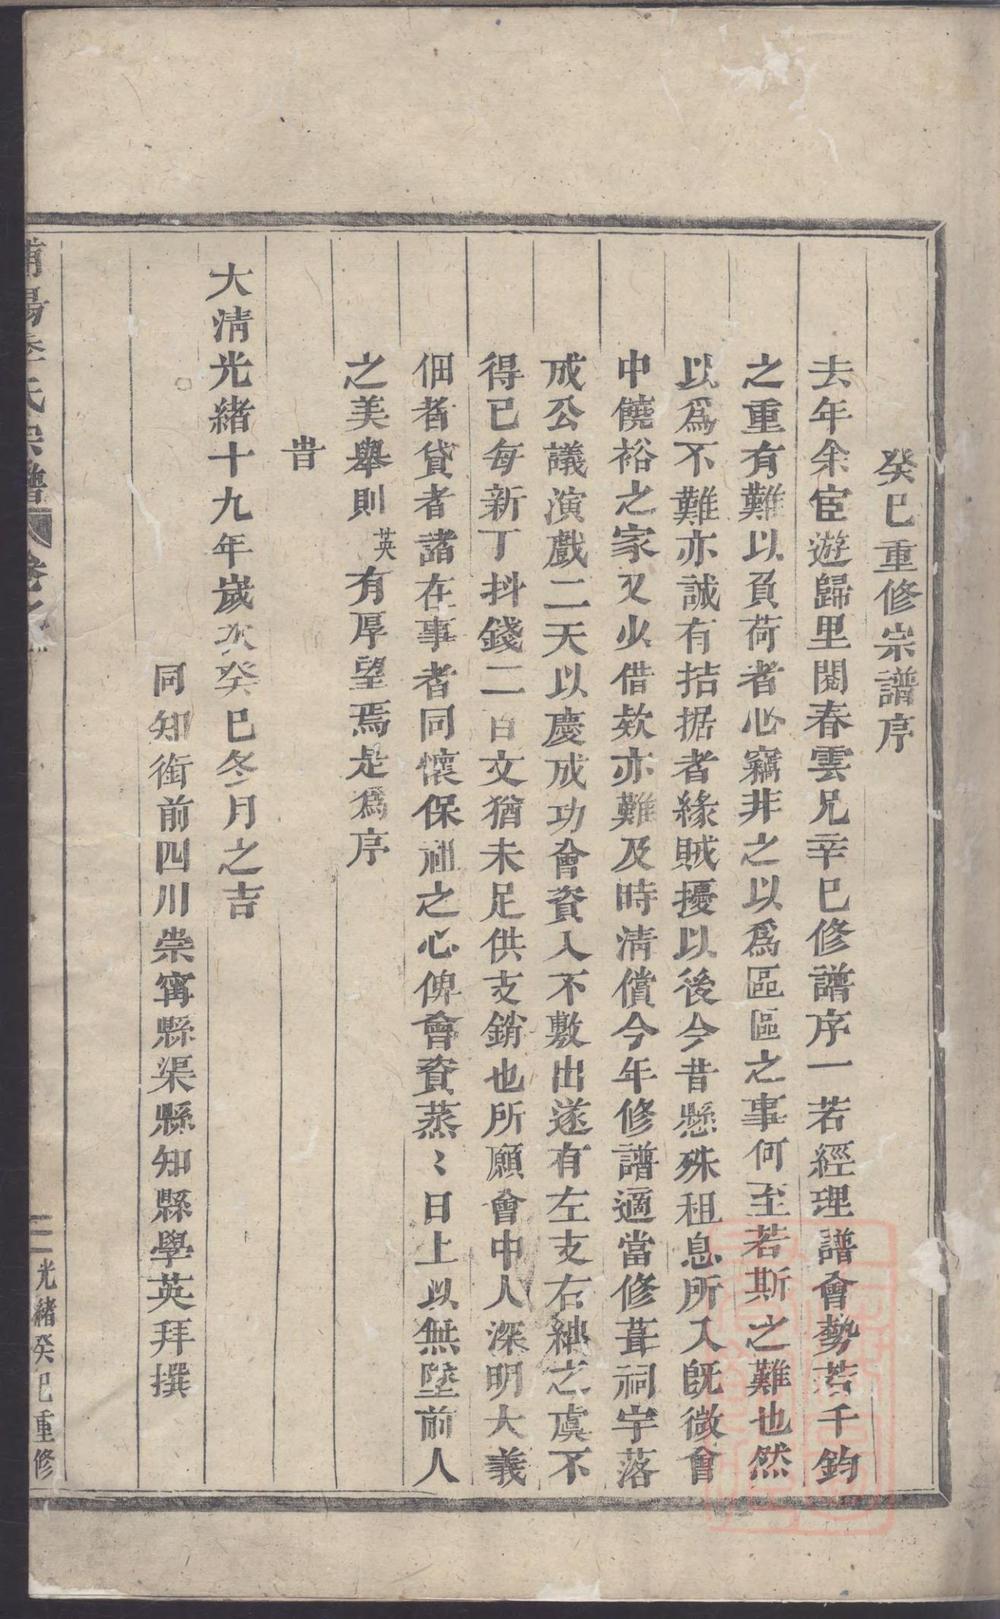 癸巳重修宗譜序
去年余宦遊歸里閱春雲兄辛巳修譜序一若經理譜會勢若千鈞
之重有難以負荷者心竊非之以爲區區之事何至若斯之難也然
以爲不難亦誠有拮据者緣賊擾以後今昔懸殊租息所入旣微會
中饒裕之家又少借欵亦難及時清償今年修譜適當修葺祠宇落
成公議演戲二天以慶成功會資入不敷出遂有左支右絀之虞不
得已每新丁抖錢二百文猶未足供支銷也所願會中人深明大義
佃者貸者諸在事者同懷保祖之心俾會資蒸〻日上以無墜前人
之美舉則英有厚望焉是爲序
旹
大清光緒十九年歲次癸巳冬月之吉
同知銜前四川崇寗縣渠縣知縣學英拜撰
浦陽李氏宗譜 卷之
二 光緒癸巳重修